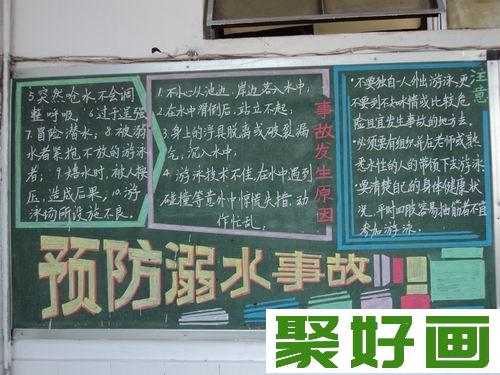 5.突然呛水,不会调
整呼吸,6.过于逞强
7.冒险潜水;8.被溺
水者紧抱不放的游泳
者;9.嬉水时,被人按
压,造成后果,10.游
泳场所设施不良。
1.不小心从池边、岸边落入水中,
2.在水中滑倒后,站立不起;
3.身上的浮具脱离或破裂漏
气,沉入水中,
4.游泳技术不佳,在水中遇到
碰撞等意外中惊慌失措,动
作忙乱。
事故发生原因
注意
·不要独自一人外出游泳,更
不要到不知水情或比较危
险且宜发生事故的地方去。
·必须要有组织并在老师或熟
悉水性的人的带领下去游泳
·要清楚自己的身体健康状
况,平时四肢容易抽筋者不宜
参加游泳。
预防溺水事故
聚好画